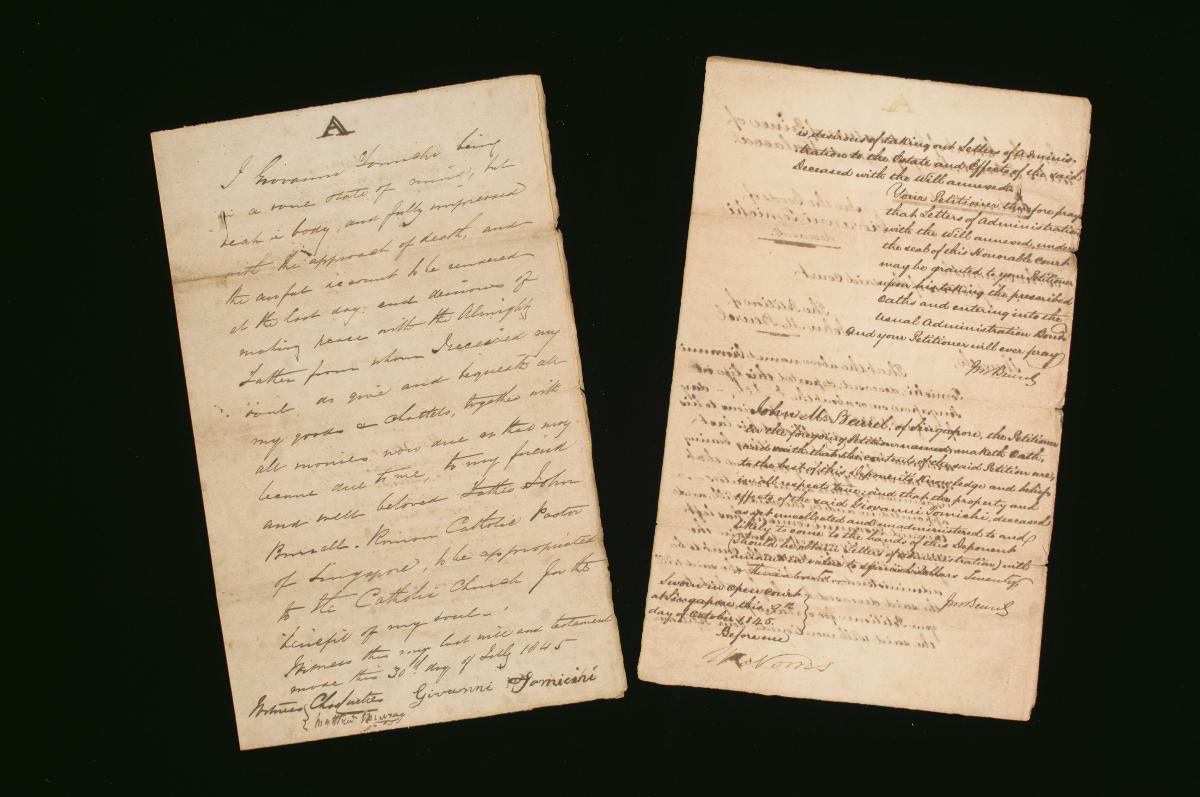 A
I Giovanni Tomichi being
in a sane state of mind, but
weak in body, and fully impressed
with the approach of death, and
the awful account to be rendered
at the last day; and desirous of
making peace with the Almighty
Father from whom I received my
soul, do give and bequeath all
my goods & chattels, together with
all monies now due or that may
become due to me, to my friend
and well beloved Father John
Roman Catholic Pastor
of Singapore, to be appropriated
to the Catholic Church for the
benefit of my soul.
Witness this my last will and testament
made this 30th day of July 1845
Witness Chas Curties Giovanni Tomichi
Matthew Murray
is desirous of taking out Letters of Adminis-
tration to the Estate and Effects of the said
Deceased with the Will annexed.
Your Petitioner therefore prays
that Letters of Administration
with the Will annexed, under
the seal of this Honorable Court
may be granted to your Petitioner
upon his taking the prescribed
Oaths and entering into the
usual Administration Bond
And your Petitioner will ever pray
Jno Beurel
John M. Beurel, of Singapore, the Petitioner
in the foregoing Petition named, maketh Oath,
and saith that the contents of the said Petition are,
to the best of this Deponent's knowledge and belief,
in all respects true; and that the property and
effects of the said Giovanni Tomichi, deceased
as yet uncollected and unadministered to and
likely to come to the hands of this Deponent
(should he obtain Letters of Administration) will
amount in value to Spanish Dollars Seventy
or thereabouts
Jno Beurel
Sworn in open Court
at Singapore this 3rd
day of October 1845.
Before me
Wm Norris